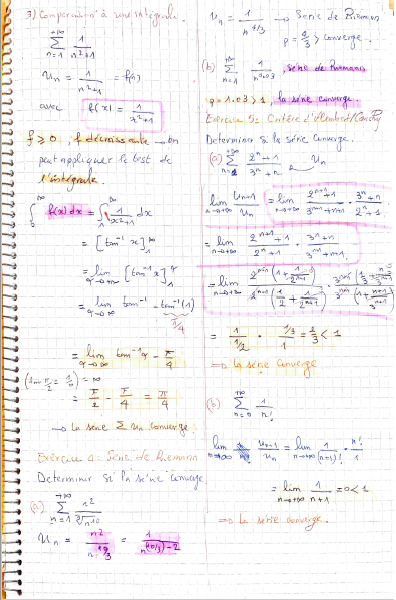 3) Comparaison à une intégrale.
+∞
∑ 1/(n²+1)
n=1
Un = 1/(n²+1) = f(n)
avec f(x) = 1/(x²+1)
f ⩾ 0, f décroissante → on
peut appliquer le test de
l'intégrale.
∫ f(x) dx = ∫ 1/(x²+1) dx
= [tan⁻¹ x]
= lim [tan⁻¹ x]
= lim tan⁻¹ - tan⁻¹(1)
π/4
= lim tan⁻¹ - π/4
= π/2 - π/4 = π/4
→ La série ∑ Un converge.
Exercice 4: Série de Riemann
Determiner si la série converge
(a) ∑ n²/∛n¹⁰
n=1
Un = n²/n^(10/3) = 1/n^((10/3)-2)
Un = 1/n^(4/3) → Serie de Riemann
p = 4/3 > converge.
(b) ∑ 1/n^1.03, série de Riemann
p = 1.03 > 1, la série converge.
Exercice 5: Critère d'Alembert/Cauchy
Determiner si la série converge.
(a) ∑ (2ⁿ+1)/(3ⁿ+n) Un
lim Un+1/Un = lim (2ⁿ⁺¹+1)/(3ⁿ⁺¹+n+1) · (3ⁿ+n)/(2ⁿ+1)
= lim (2ⁿ⁺¹+1)/(2ⁿ+1) · (3ⁿ+n)/(3ⁿ⁺¹+n+1)
= 1/(1/2) · (1/3)/1 = 2/3 < 1
⇒ la série converge
(b) ∑ 1/n!
n=0
lim Un+1/Un = lim 1/(n+1)! · n!/1
= lim 1/(n+1) = 0 < 1
⇒ la série converge.